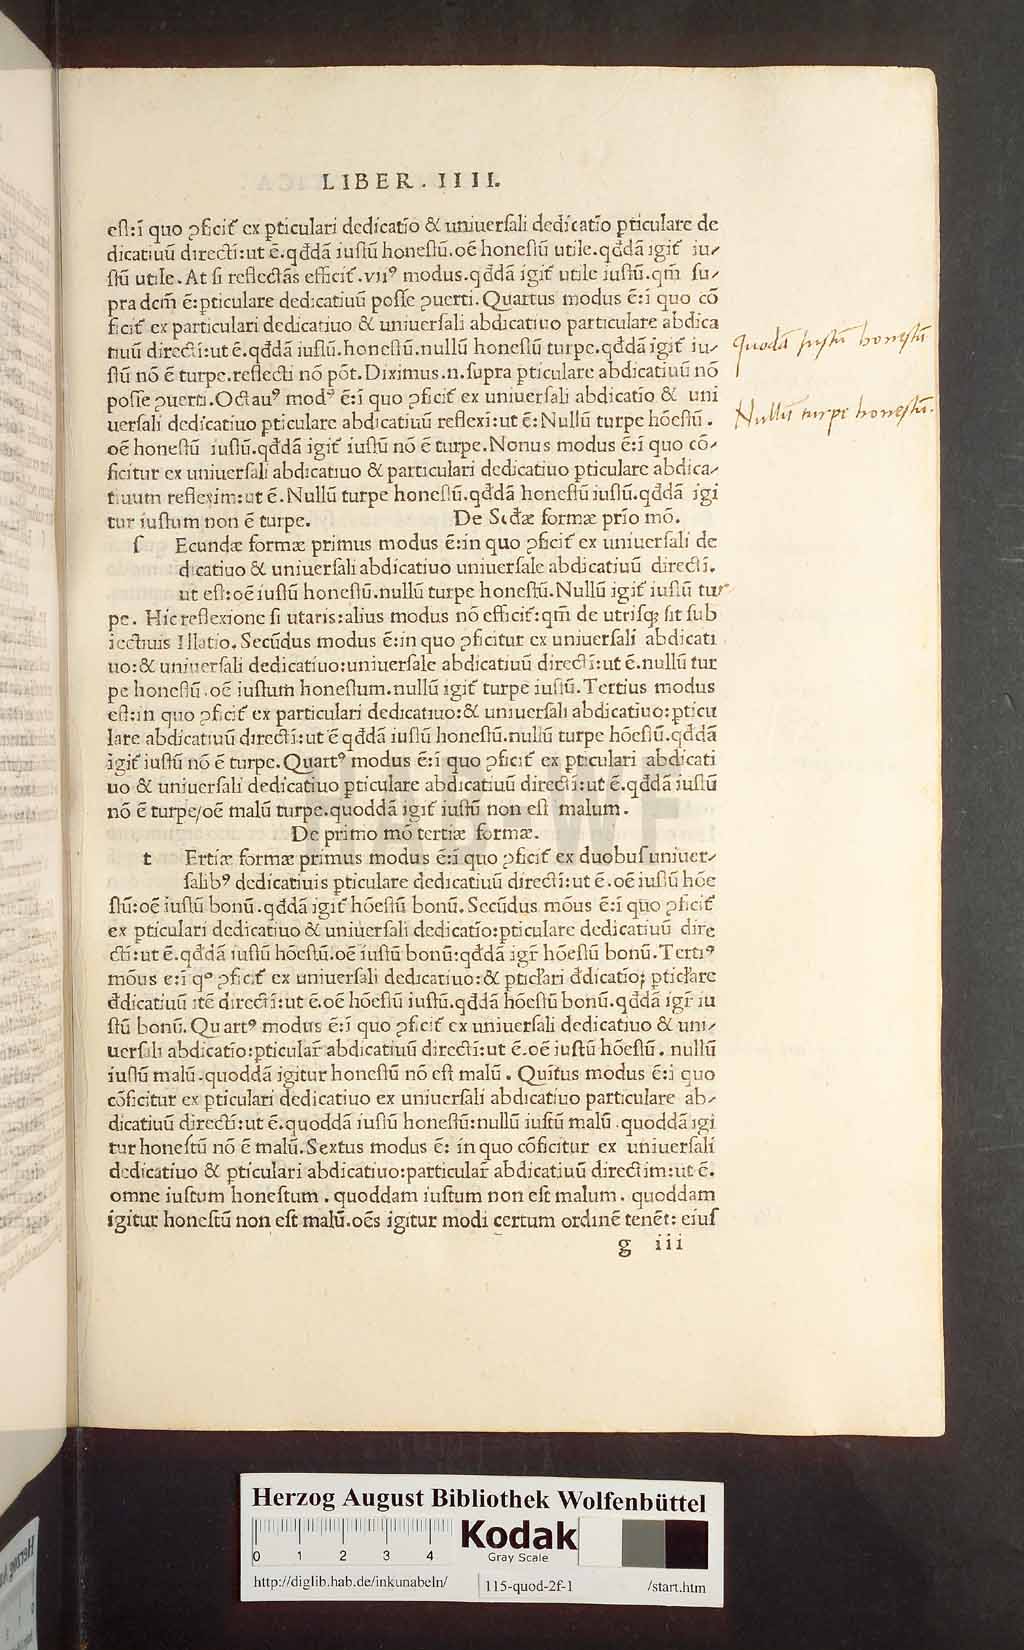 LIBER . IIII.
eſt:ī quo ꝯficit᷑ ex ꝑticulari dedicatīo & uniuerſali dedicatīo ꝑticulare de
dicatiuū directī:ut ē.qđdā iuſtū honeſtū.oē honeſtū utile.qđdā igit᷑ iu-
ſtū utile. At ſi reflectās efficit᷑.vii⁹ modus.qđdā igit᷑ utile iuſtū.qm̄ ſu-
pra dem̄ ē:ꝑticulare dedicatiuū poſſe ꝯuerti. Quartus modus ē:ī quo cō
ficit᷑ ex particulari dedicatiuo & uniuerſali abdicatiuo particulare abdica
tiuū directī:ut ē.qđdā iuſtū.honeſtū.nullū honeſtū turpe.qđdā igit᷑ iu-
ſtū nō ē turpe.reflecti nō pōt. Diximus.n.ſupra pticulare abdicatiuū nō
poſſe ꝯuerti.Octau⁹ mod⁹ ē:ī quo ꝯficit᷑ ex uniuerſali abdicatio & uni
uerſali dedicatiuo pticulare abdicatiuū reflexī:ut ē:Nullū turpe hōeſtū.
oē honeſtū iuſtū.qđdā igit᷑ iuſtū nō ē turpe. Nonus modus ē:ī quo cō-
ficitur ex uniuerſali abdicatiuo & particulari dedicatiuo pticulare abdica-
tiuum reflexim:ut ē. Nullū turpe honeſtū.qđdā honeſtū iuſtū.qđdā igi
tur iuſtum non ē turpe. De Scđæ formæ prīo mō.
ſ Ecundæ formæ primus modus ē:in quo ꝯficit᷑ ex uniuerſali de
dicatiuo & uniuerſali abdicatiuo uniuerſale abdicatiuū directī.
ut eſt:oē iuſtū honeſtū.nullū turpe honeſtū.Nullū igit᷑ iuſtū tur
pe. Hic reflexione ſi utaris:alius modus nō efficit᷑:qm̄ de utriſqꝫ fit ſub
iectiuis Illatio. Secūdus modus ē:in quo ꝯficitur ex uniuerſali abdicati
uo:& uniuerſali dedicatiuo:uniuerſale abdicatiuū directī:ut ē.nullū tur
pe honeſtū.oē iuſtum honeſtum.nullū igit᷑ turpe iuſtū. Tertius modus
eſt:in quo ꝯficit᷑ ex particulari dedicatiuo:& uniuerſali abdicatiuo:pticu
lare abdicatiuū directī:ut ē qđdā iuſtū honeſtū.nullū turpe hōeſtū.qđdā
igit᷑ iuſtū nō ē turpe. Quart⁹ modus ē:ī quo ꝯficit᷑ ex ꝑticulari abdicati
uo & uniuerſali dedicatiuo pticulare abdicatiuū directī:ut ē.qđdā iuſtū
nō ē turpe/oē malū turpe.quoddā igit᷑ iuſtū non eſt malum.
De primo mō tertiæ formæ.
t Ertiæ formæ primus modus ē:ī quo ꝯficit᷑ ex duobuſ uniuer-
ſalib⁹ dedicatiuis pticulare dedicatiuū directī:ut ē.oē iuſtū hōe
ſtū:oē iuſtū bonū.qđdā igit᷑ hōeſtū bonū. Secūdus mōus ē:ī quo ꝯficit᷑
ex pticulari dedicatiuo & uniuerſali dedicatīo:pticulare dedicatiuū dire
ctī:ut ē.qđdā iuſtū hōeſtū.oē iuſtū bonū:qđdā igr̄ hōeſtū bonū. Terti⁹
mōus e:ī qº ꝯficit᷑ ex uniuerſali dedicatiuo:& pticl̄ari đdicatīo; pticl̄are
đdicatiuū itē directī:ut ē.oē hōeſtū iuſtū.qđdā hōeſtū bonū.qđdā igr̄ iu
ſtū bonū. Quart⁹ modus ē:ī quo ꝯficit᷑ ex uniuerſali dedicatiuo & uni-
uerſali abdicatīo:pticular̄ abdicatiuū directī:ut ē.oē iuſtū hōeſtū. nullū
iuſtū malū.quoddā igitur honeſtū nō eſt malū. Quītus modus ē:ī quo
cōficitur ex pticulari dedicatiuo ex uniuerſali abdicatiuo particulare ab-
dicatiuū directī:ut ē.quoddā iuſtū honeſtū:nullū iuſtū malū.quoddā igi
tur honeſtū nō ē malū. Sextus modus ē: in quo cōficitur ex uniuerſali
dedicatiuo & pticulari abdicatiuo:particular̄ abdicatiuū directim:ut ē.
omne iuſtum honeſtum . quoddam iuſtum non eſt malum . quoddam
igitur honeſtū non eſt malū.oēs igitur modi certum ordinē tenēt: eiuſ
g iii
Quodā iustū honestū
Nullū turpe honestū.
HAB-WF
Herzog August Bibliothek Wolfenbüttel
0 1 2 3 4
Kodak
Gray Scale
http://diglib.hab.de/inkunabeln/ 115-quod-2f-1 /start.htm